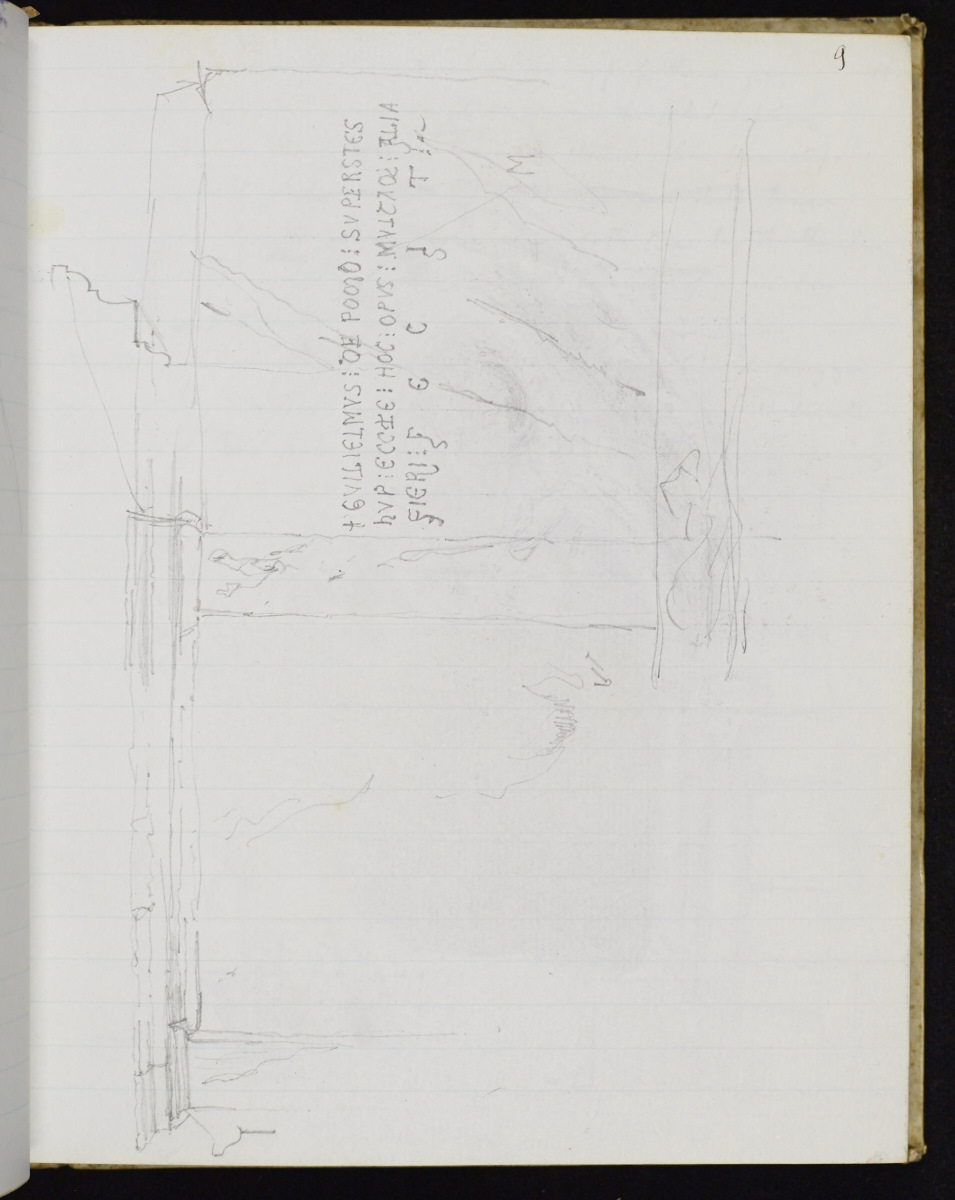 9
+ GVILIELMVS : DE PODIO : SVPERSTES
hVP : ECCLE : HOC : OPVS : MVLTAQ : ALIA
FIERI : F E C I T
M